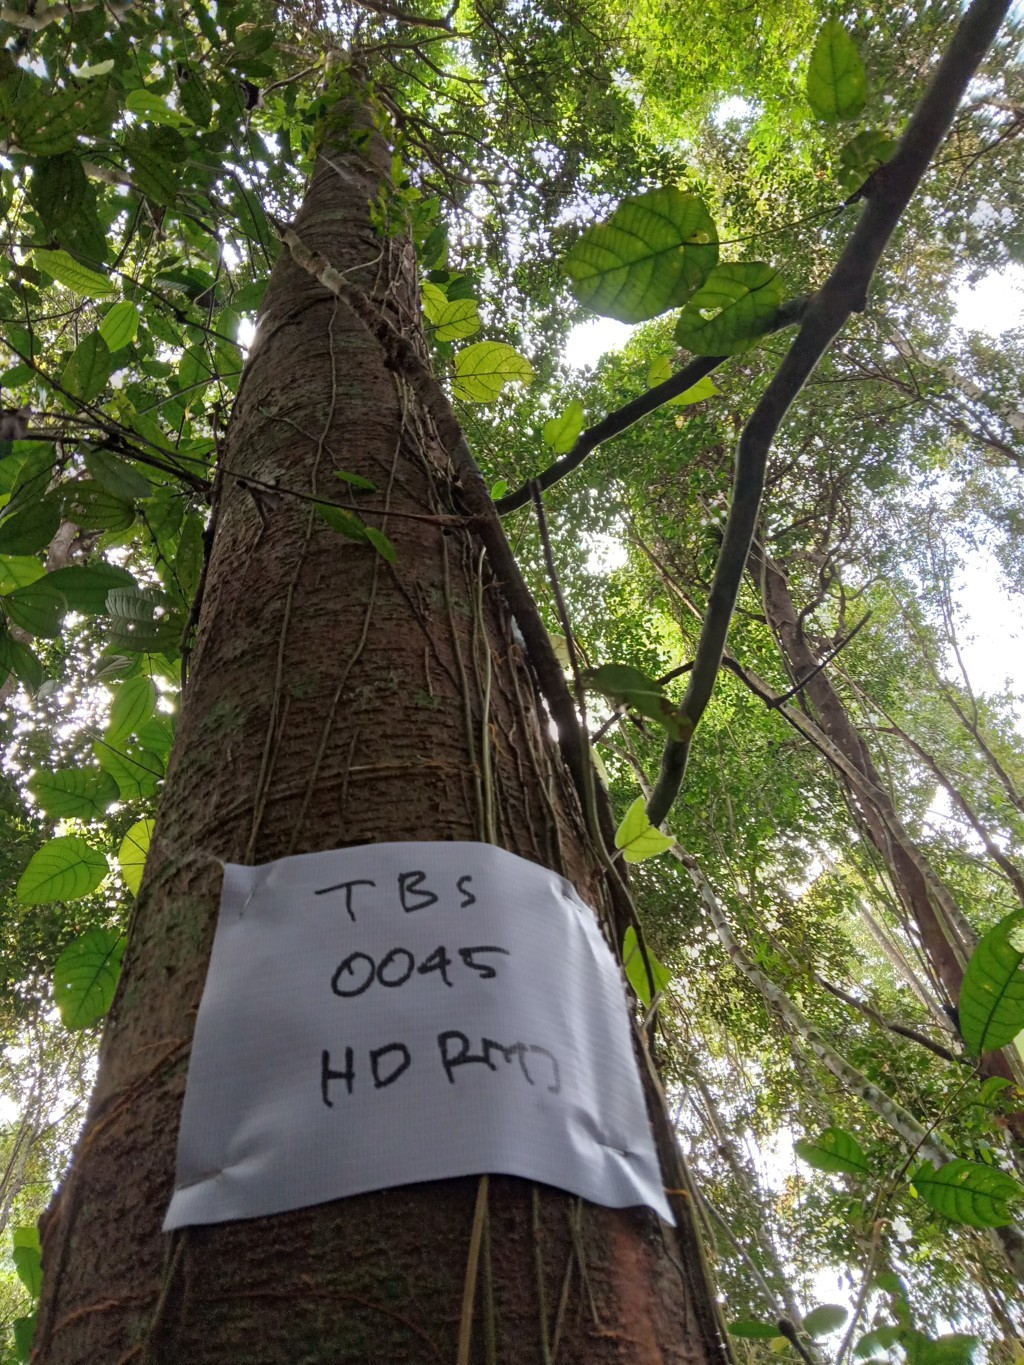 TBS
0045
HD RMJ